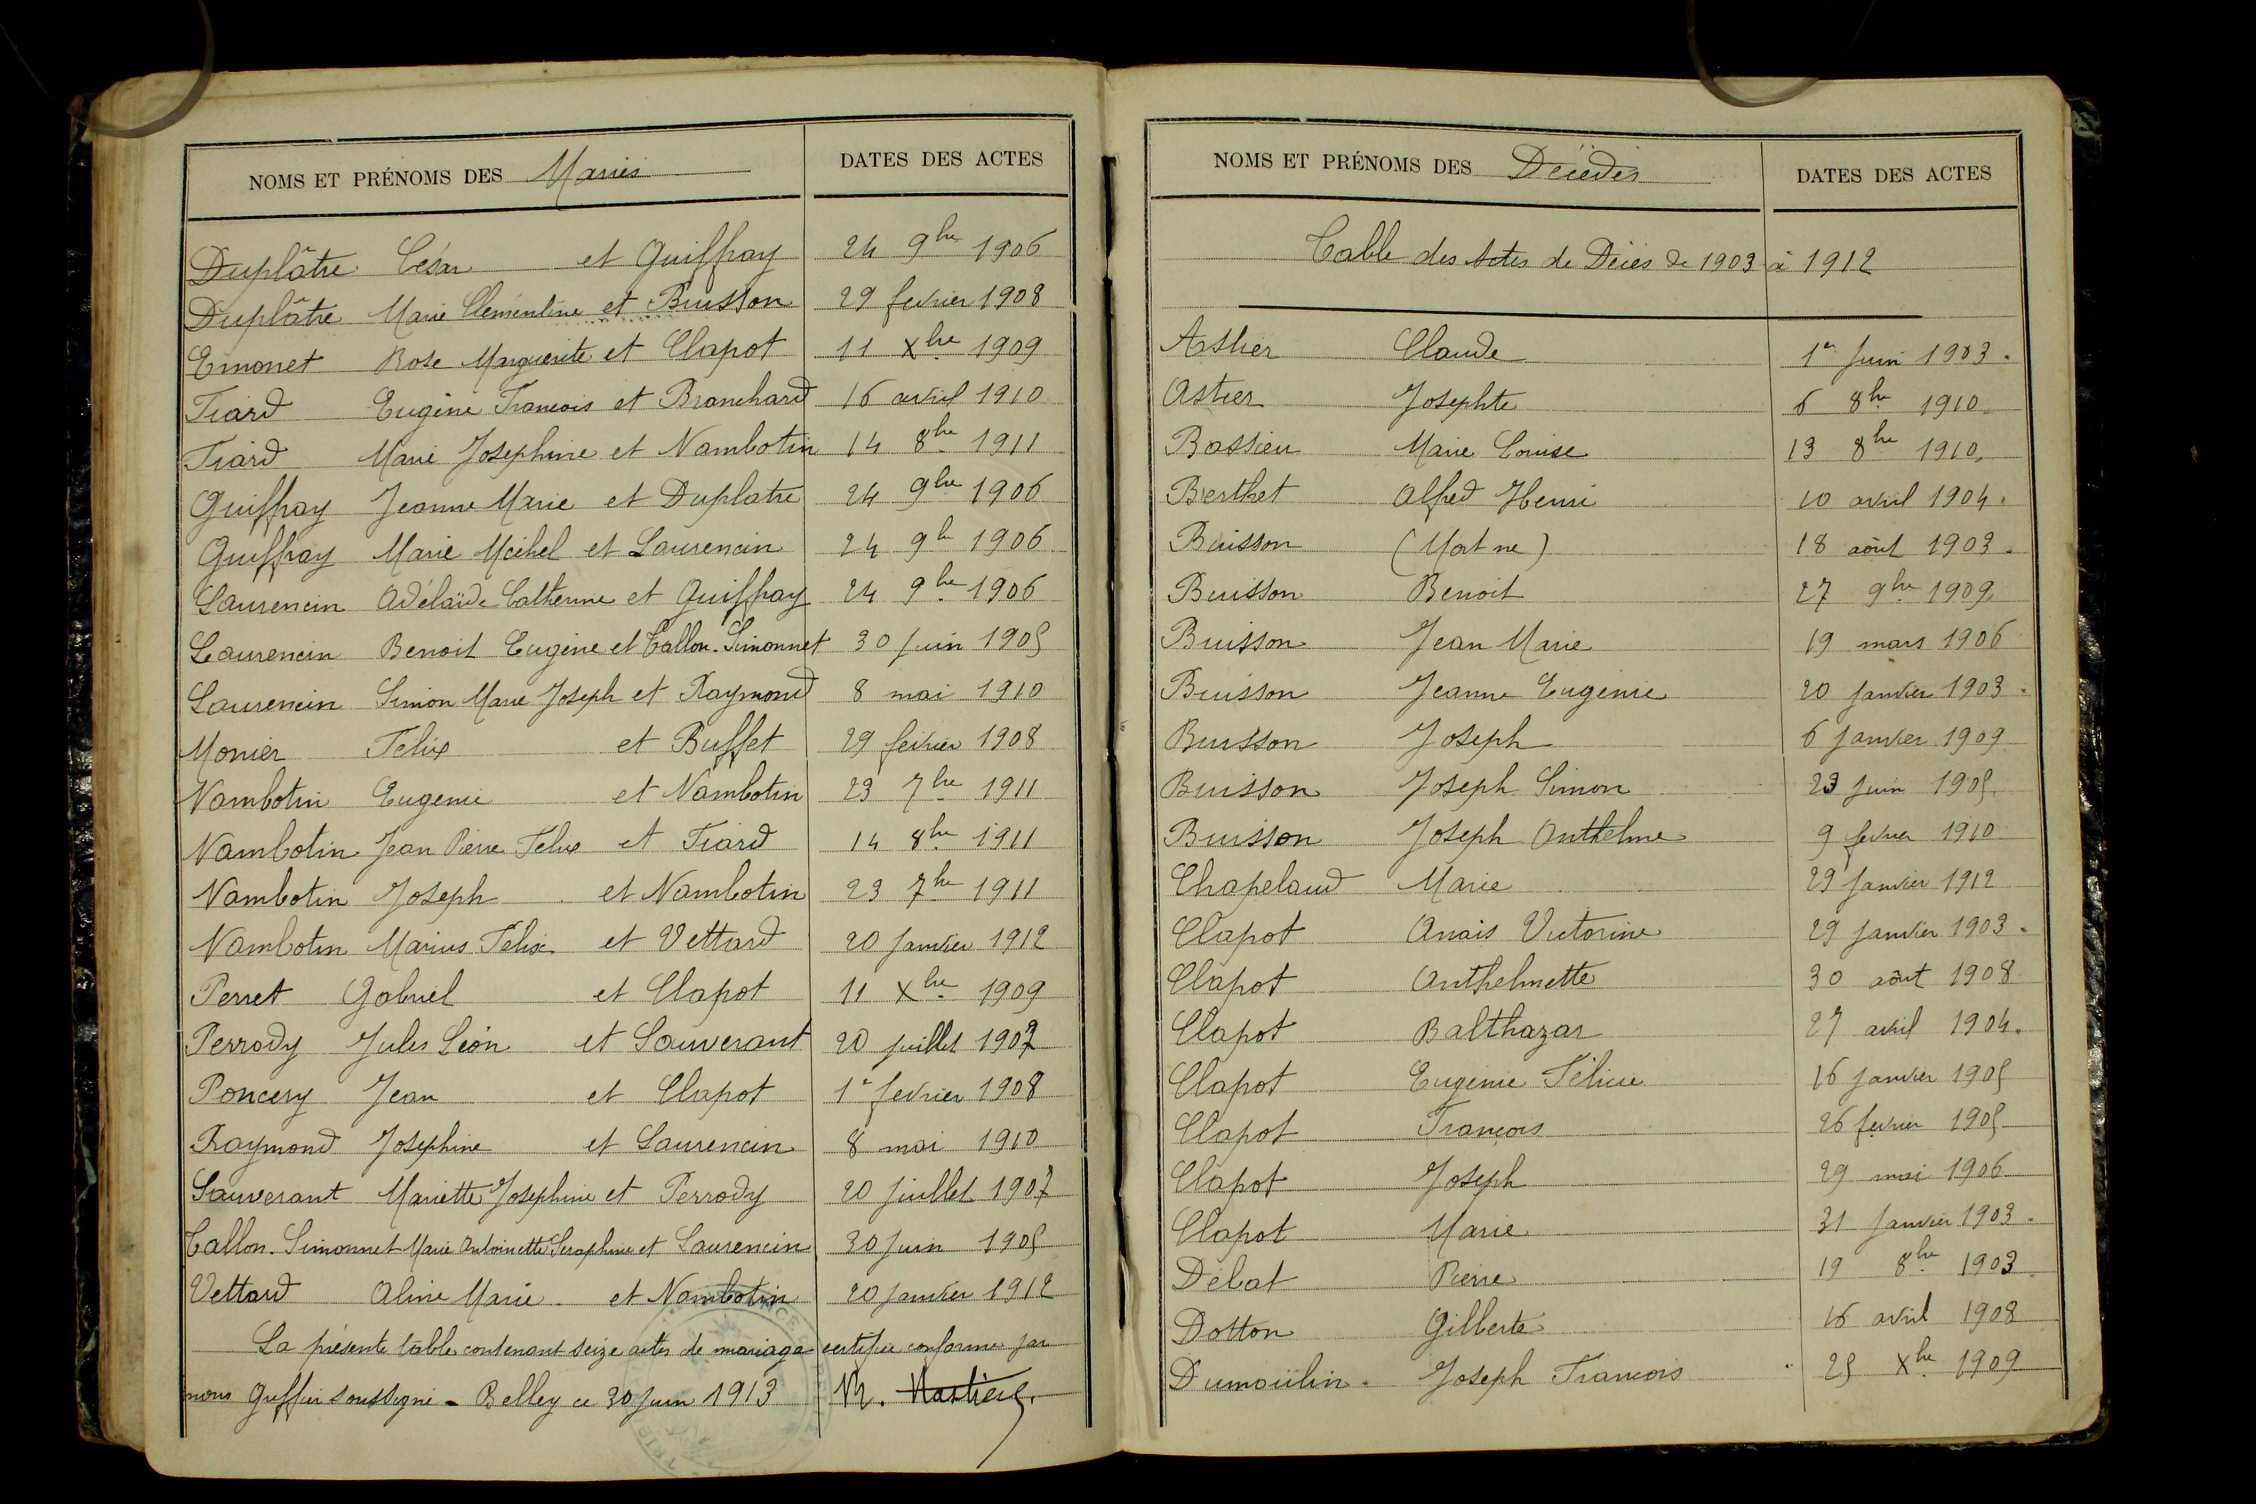 NOMS ET PRÉNOMS DES Mariés DATES DES ACTES
Duplâtre César et Guiffray 24 9bre 1906
Duplâtre Marie Clémentine et Buisson 29 fevrier 1908
Emonet Rose Marguerite et Clapot 11 Xbre 1909
Fiard Eugène Francois et Branchard 16 avril 1910
Fiard Marie Josephine et Nambotin 14 8bre 1911
Guiffray Jeanne Marie et Duplatre 24 9bre 1906
Guiffray Marie Michel et Laurencin 24 9bre 1906
Laurencin Adélaïde Catherine et Guiffray 24 9bre 1906
Laurencin Benoit Eugène et Tallon-Simonnet 30 Juin 1905
Laurencin Simon Marie Joseph et Raymond 8 mai 1910
Monier Félix et Buffet 29 février 1908
Nambotin Eugenie et Nambotin 23 7bre 1911
Nambotin Jean Pierre Felix et Fiard 14 8bre 1911
Nambotin Joseph et Nambotin 23 7bre 1911
Nambotin Marius Félix et Vettard 20 Janvier 1912
Perret Gabriel et Clapot 11 Xbre 1909
Perrody Jules Léon et Sauverant 20 Juillet 1907
Poncery Jean et Clapot 1er fevrier 1908
Raymond Josephine et Laurencin 8 mai 1910
Sauverant Mariette Josephine et Perrody 20 Juillet 1907
Tallon-Simonnet Marie Antoinette Seraphine et Laurencin 30 Juin 1905
Vettard Aline Marie et Nambotin 20 Janvier 1912
La présente table contenant seize actes de mariage certifiée conforme par
nous Greffier soussigné - Belley ce 30 Juin 1913
NOMS ET PRÉNOMS DES Décédés DATES DES ACTES
Table des Actes de Décès de 1903 à 1912
Astier Claude 1er Juin 1903.
Astier Josephte 6 8bre 1910.
Bassieu Marie Louise 13 8bre 1910.
Berthet Alfred Henri 10 avril 1904.
Buisson (Mort né) 18 août 1903.
Buisson Benoit 27 9bre 1909
Buisson Jean Marie 19 mars 1906
Buisson Jeanne Eugenie 20 Janvier 1903.
Buisson Joseph 6 Janvier 1909
Buisson Joseph Simon 23 Juin 1905.
Buisson Joseph Anthelme 9 fevrier 1910
Chapeland Marie 29 Janvier 1912
Clapot Anais Victorine 29 Janvier 1903.
Clapot Anthelmette 30 août 1908
Clapot Balthazar 27 avril 1904.
Clapot Eugenie Félicie 16 Janvier 1905
Clapot François 26 fevrier 1905
Clapot Joseph 29 mai 1906
Clapot Marie 31 Janvier 1903.
Débat Pierre 19 8bre 1903.
Dotton Gilberte 16 avril 1908
Dumoulin Joseph Francois 25 Xbre 1909